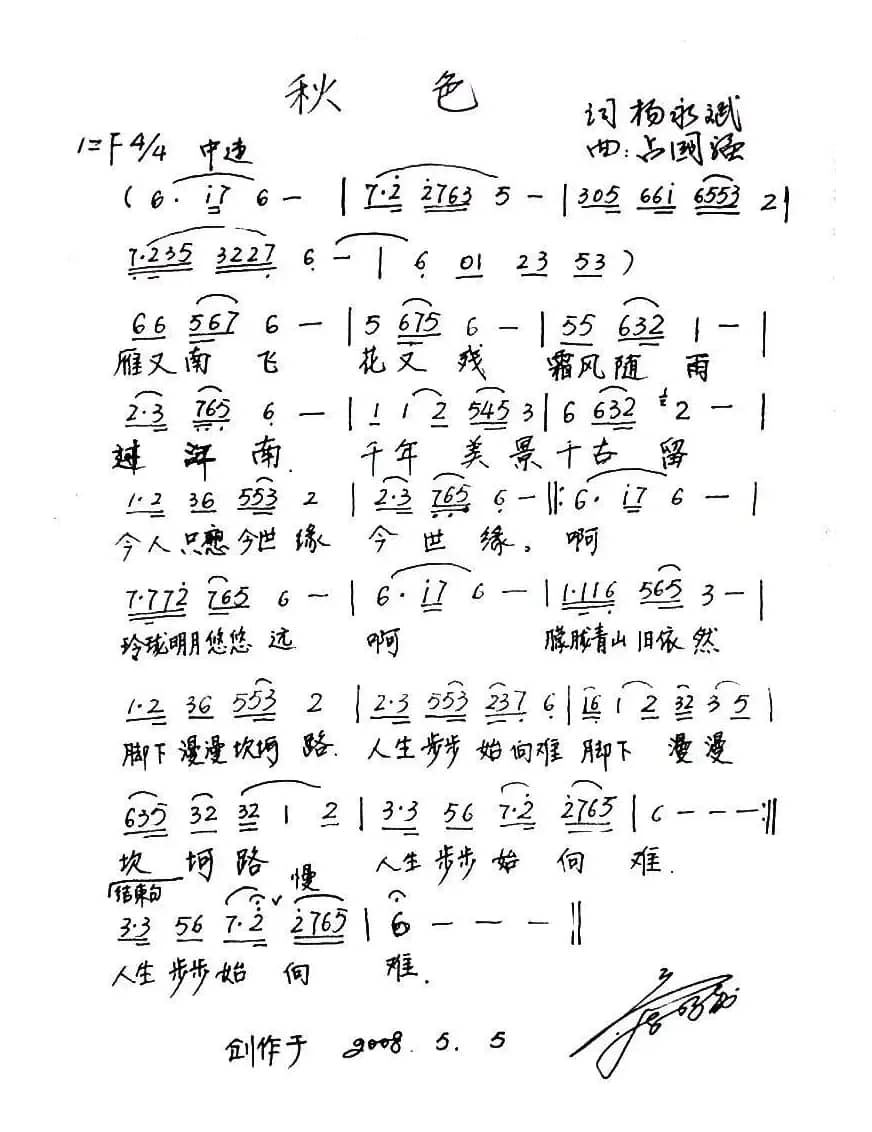 秋 色
词 杨永斌
1=F 4/4 中速
曲:占国强
( 6· i7 6 — | 7·2 2763 5 — | 305 661 6553 2 |
7·235 3227 6 — | 6 01 23 53 )
66 567 6 — | 5 675 6 — | 55 632 1 — |
雁又南飞 花又残 霜风随雨
2·3 765 6 — | 1 1 2 545 3 | 6 632 2 — |
过江南. 千年美景千古留
1·2 36 553 2 | 2·3 765 6 — ‖: 6· i7 6 — |
今人只恋今世缘 今世缘。啊
7·772 765 6 — | 6· i7 6 — | 1·116 565 3 — |
玲珑明月悠悠远 啊 朦胧青山旧依然
1·2 36 553 2 | 2·3 553 237 6 | 16 1 2 32 3 5 |
脚下漫漫坎坷路. 人生步步始向难 脚下漫漫
635 32 32 1 2 | 3·3 56 7·2 2765 | 6 — — — :‖
坎坷路 人生步步始向难.
结束句 慢
3·3 56 7·2 2765 | 6 — — — ‖
人生步步始向难.
创作于 2008. 5. 5